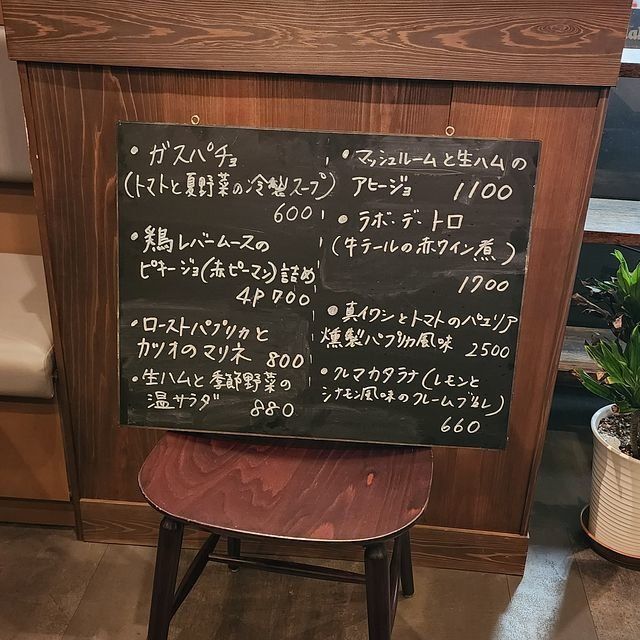 ・ガスパチョ
(トマトと夏野菜の冷製スープ)
600
・鶏レバームースの
ピキージョ(赤ピーマン)詰め
4P 700
・ローストパプリカと
カツオのマリネ 800
・生ハムと季節野菜の
温サラダ 880
・マッシュルームと生ハムの
アヒージョ 1100
・ラボ・デ・トロ
(牛テールの赤ワイン煮)
1700
・真イワシとトマトのパエリア
燻製パプリカ風味 2500
・クレマカタラナ(レモンと
シナモン風味のクレームブリュレ)
660